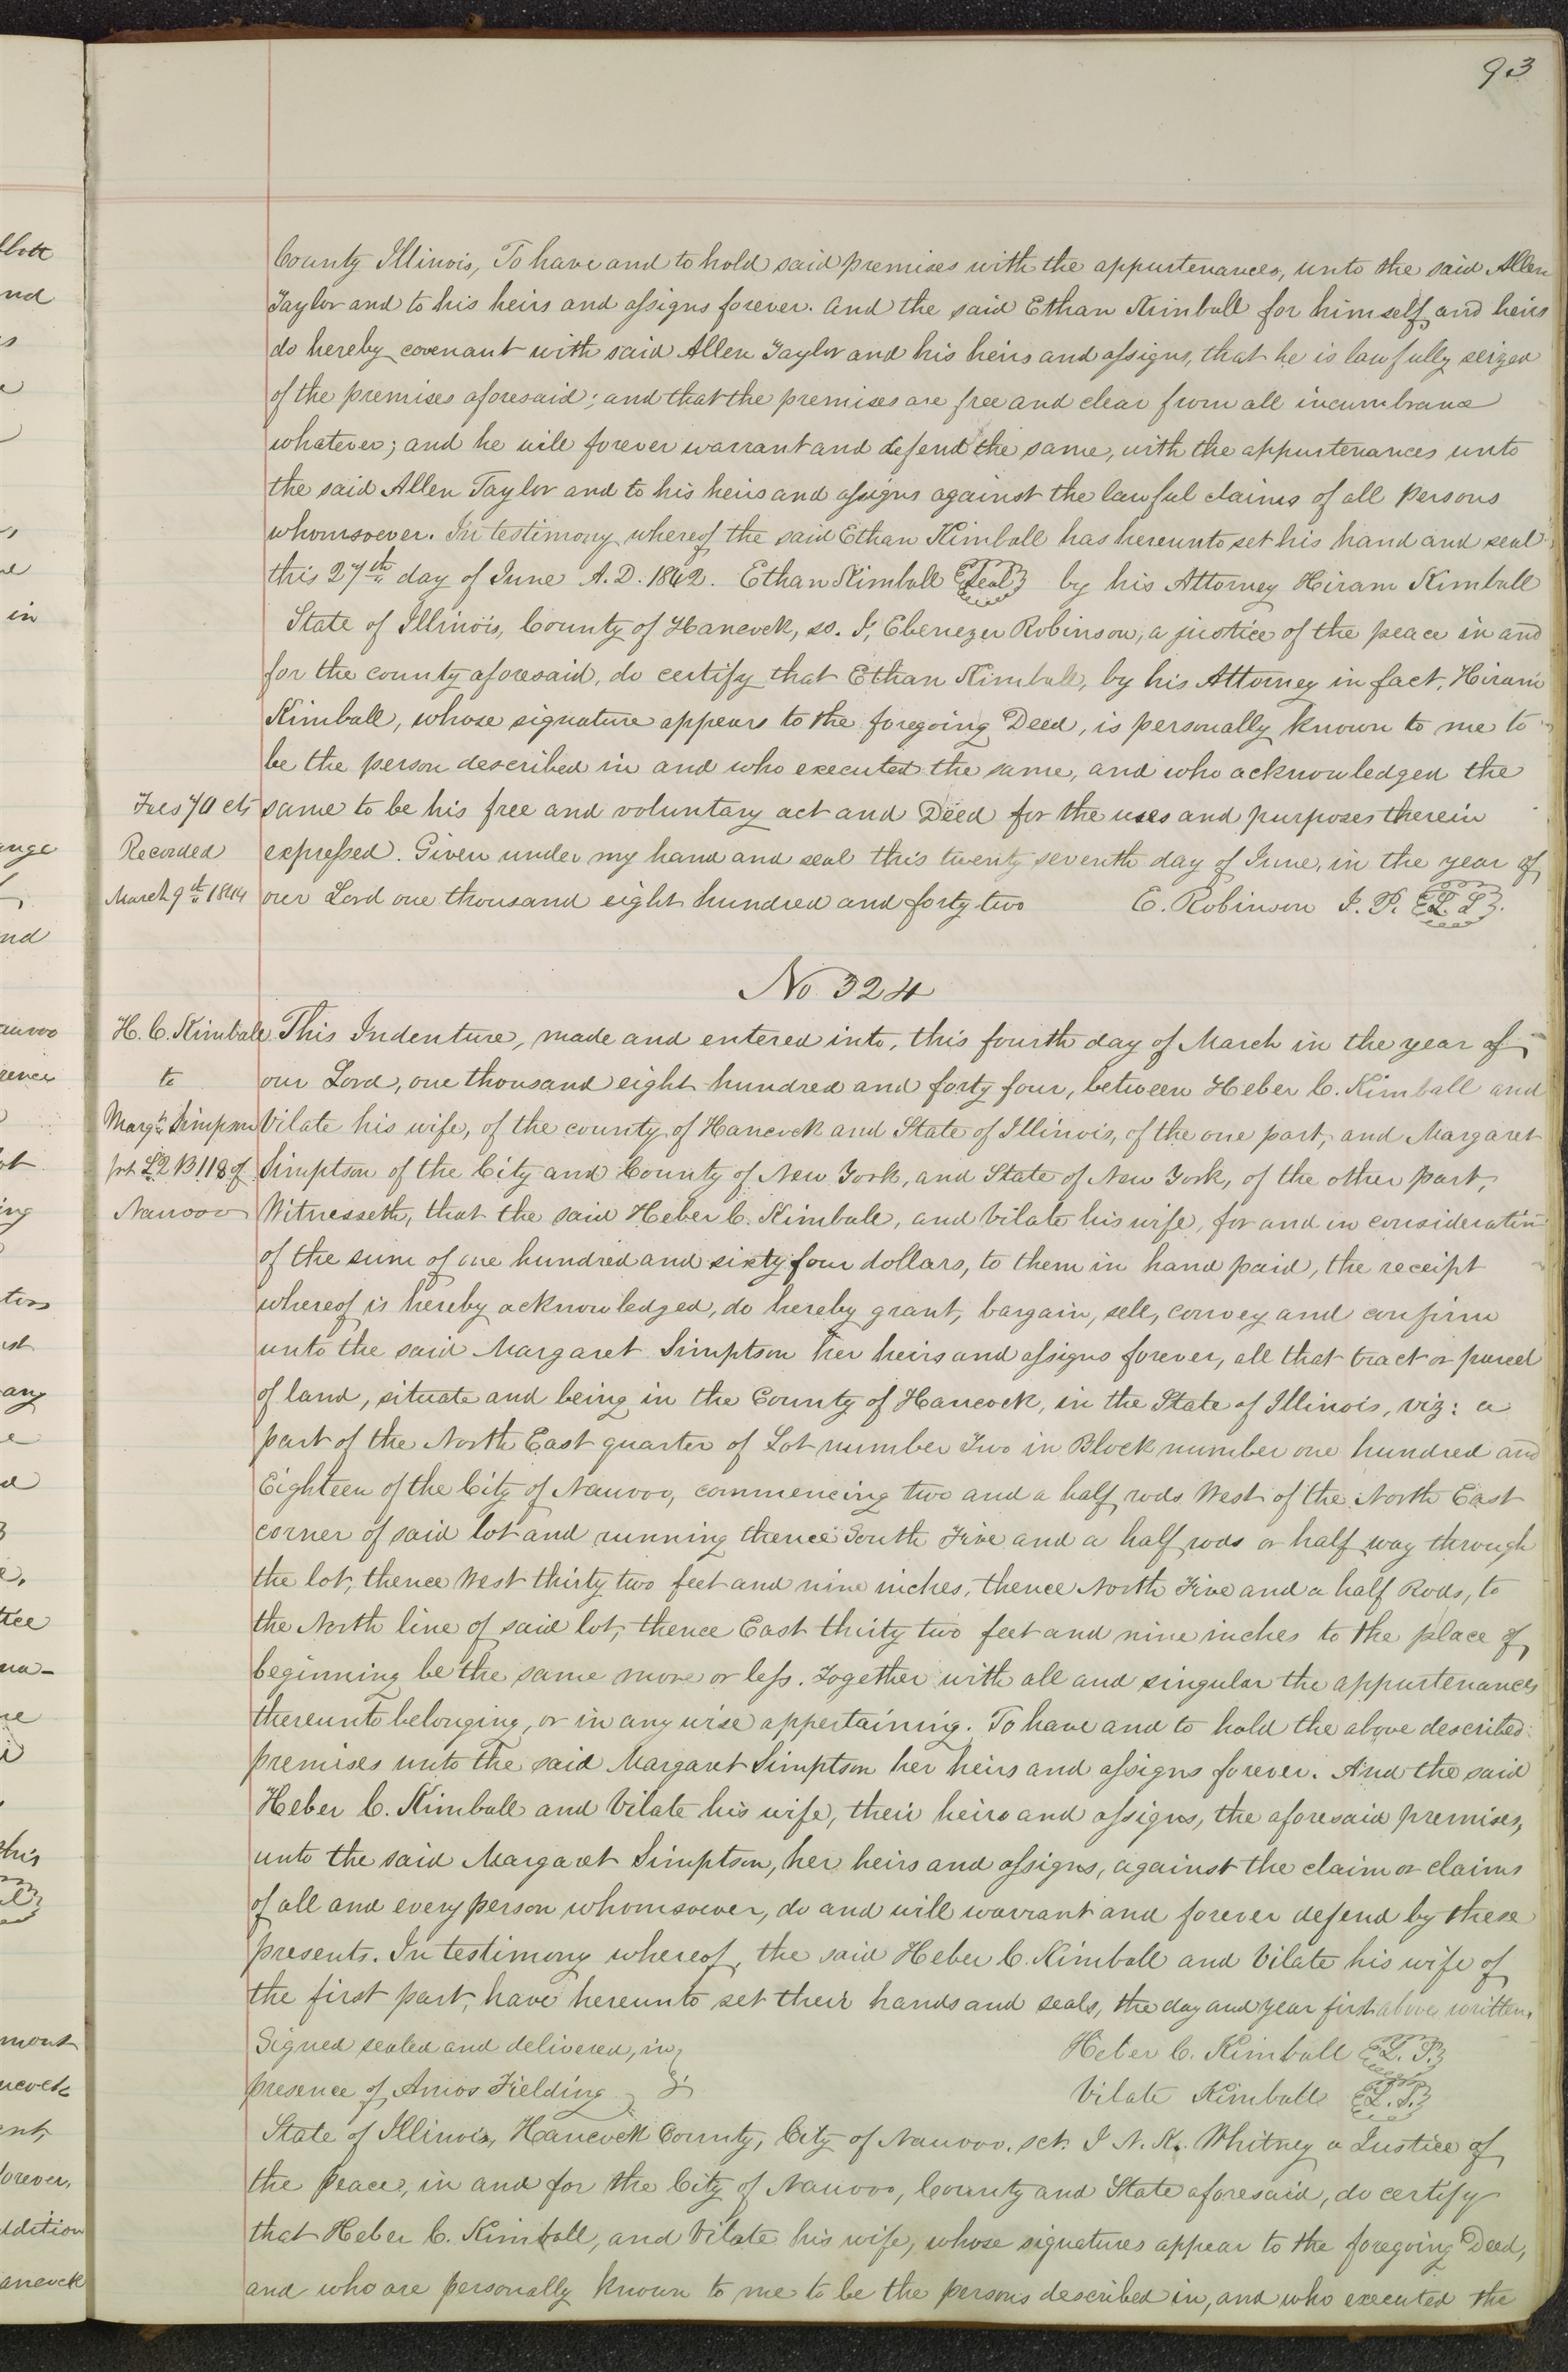 93
County Illinois, To have and to hold said premises with the appurtenances, unto the said Allen
Taylor and to his heirs and assigns forever. And the said Ethan Kimball for himself and heirs
do hereby covenant with said Allen Taylor and his heirs and assigns, that he is lawfully seized
of the premises aforesaid; and that the premises are free and clear from all incumbrance
whatever; and he will forever warrant and defend the same, with the appurtenances unto
the said Allen Taylor and to his heirs and assigns against the lawful claims of all persons
whomsoever. In testimony whereof the said Ethan Kimball has hereunto set his hand and seal
this 27th day of June A.D. 1842. Ethan Kimball Seal by his Attorney Hiram Kimball
State of Illinois, County of Hancock, ss. I, Ebenezer Robinson, a justice of the peace in and
for the county aforesaid, do certify that Ethan Kimball, by his Attorney in fact, Hiram
Kimball, whose signature appears to the foregoing Deed, is personally known to me to
be the person described in and who executed the same, and who acknowledged the
Fees 70 cts same to be his free and voluntary act and Deed for the uses and purposes therein
Recorded expressed. Given under my hand and seal this twenty seventh day of June, in the year of
March 9th 1844 our Lord one thousand eight hundred and forty two E. Robinson J. P. L. S.
No 324
H. C. Kimball This Indenture, made and entered into, this fourth day of March in the year of
to our Lord, one thousand eight hundred and forty four, between Heber C. Kimball and
Margt Simpson Vilate his wife, of the county of Hancock and State of Illinois, of the one part, and Margaret
prt L2 B118 of Simptson of the City and County of New York, and State of New York, of the other part,
Nauvoo Witnesseth, that the said Heber C. Kimball, and Vilate his wife, for and in consideration
of the sum of one hundred and sixty four dollars, to them in hand paid, the receipt
whereof is hereby acknowledged, do hereby grant, bargain, sell, convey and confirm
unto the said Margaret Simptson her heirs and assigns forever, all that tract or parcel
of land, situate and being in the County of Hancock, in the State of Illinois, viz: a
part of the North East quarter of Lot number Two in Block number one hundred and
Eighteen of the City of Nauvoo, commencing two and a half rods West of the North East
corner of said lot and running thence South Five and a half rods or half way through
the lot, thence West thirty two feet and nine inches, thence North Five and a half Rods, to
the North line of said lot, thence East thirty two feet and nine inches to the place of
beginning be the same more or less. Together with all and singular the appurtenances
thereunto belonging, or in any wise appertaining. To have and to hold the above described
premises unto the said Margaret Simptson her heirs and assigns forever. And the said
Heber C. Kimball and Vilate his wife, their heirs and assigns, the aforesaid premises,
unto the said Margaret Simptson, her heirs and assigns, against the claim or claims
of all and every person whomsoever, do and will warrant and forever defend by these
presents. In testimony whereof, the said Heber C. Kimball and Vilate his wife of
the first part, have hereunto set their hands and seals, the day and year first above written.
Signed sealed and delivered, in Heber C. Kimball L. S.
presence of Amos Fielding Vilate Kimball L. S.
State of Illinois, Hancock County, City of Nauvoo. sct. I N. K. Whitney a Justice of
the Peace, in and for the City of Nauvoo, County and State aforesaid, do certify
that Heber C. Kimball, and Vilate his wife, whose signatures appear to the foregoing Deed,
and who are personally known to me to be the persons described in, and who executed the